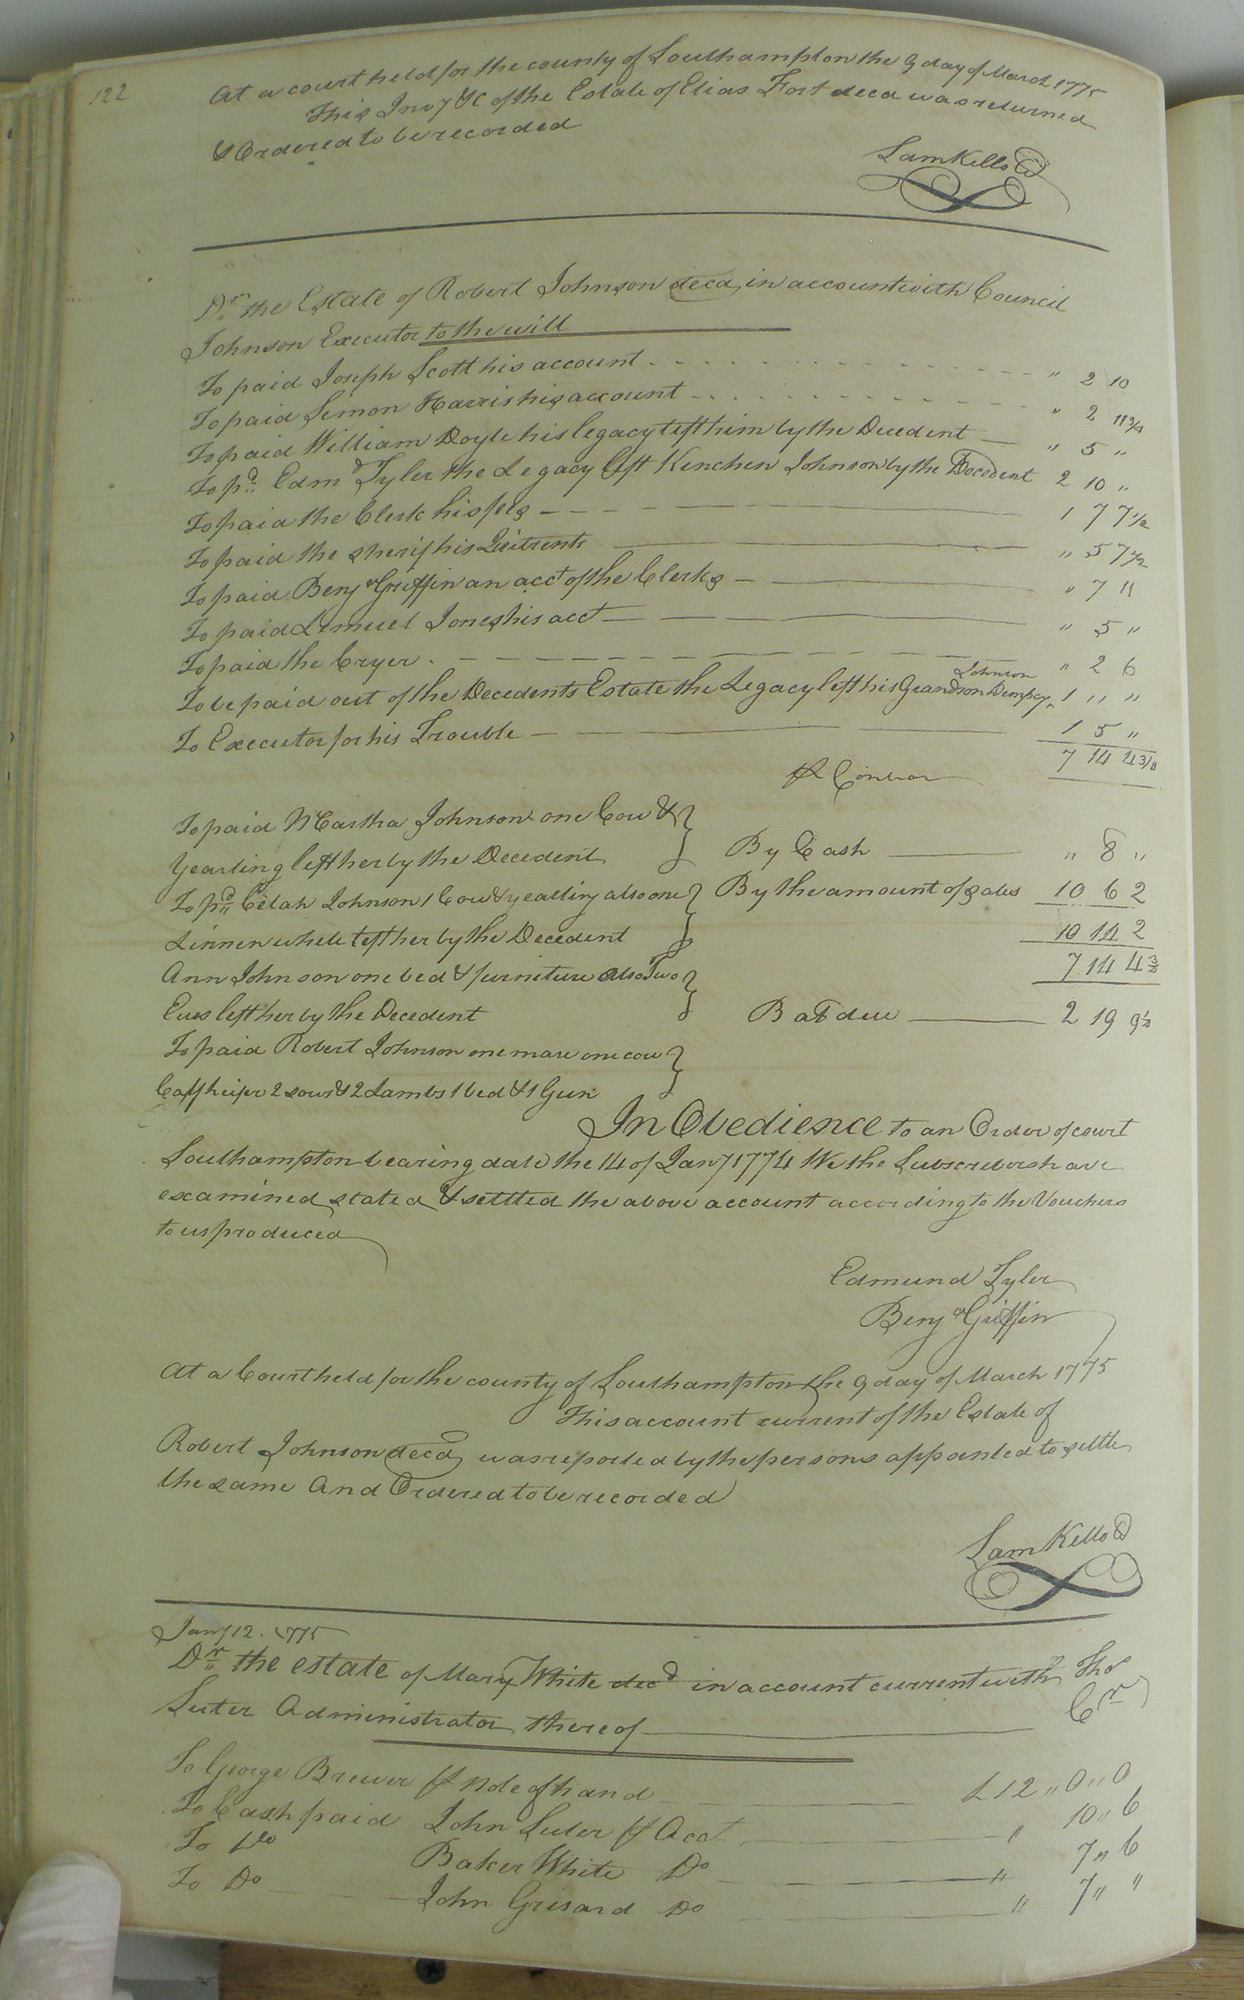 122
At a court held for the county of Southampton the 9 day of March 1775
This Invy &C of the Estate of Elias Fort decd was returned
& Ordered to be recorded
Sam Kello
Dr. the Estate of Robert Johnson decd, in account with Council
Johnson Executor to the will
To paid Joseph Scott his account " 2 10
To paid Simon Harris his account " 2 11 3/4
To paid William Doyle his legacy left him by the Decedent " 5 "
To pd. Edmd Tyler the Legacy left Kinchen Johnson by the Decedent 2 10 "
To paid the Clerk his fees 1 7 7 1/2
To paid the sherif his Quitrents " 5 7 1/2
To paid Benj a Griffin an acct of the Clerks " 7 "
To paid Lemuel Jones his acct " 5 "
To paid the Cryer " 2 6
To be paid out of the Decedents Estate the Legacy left his Grandson Dempsey Johnson 1 " "
To Executor for his Trouble 1 5 "
7 14 4
To paid Martha Johnson one Cow &
Yearling left her by the Decedent By Cash " 8 "
To pd Celah Johnson 1 Cow & yealling also one By the amount of sales 10 6 2
Linnen whele left her by the Decedent 10 14 2
Ann Johnson one bed & furniture also Two 7 14 4
Ews left her by the Decedent Bal due 2 19 9
To paid Robert Johnson one mare one cow
Calf heifer 2 sows & 2 Lambs 1 bed & 1 Gun
In Obedience to an Order of court
Southampton bearing date the 14 of Jany 1774 We the Subscribers have
examined, stated, & settled the above account according to the Vouchers
to us produced
Edmund Tyler
Benj a Griffin
At a Court held for the county of Southampton the 9 day of March 1775
This account current of the Estate of
Robert Johnson decd, was reported by the persons appointed to settle
the same And Ordered to be recorded
Sam Kello
Jany 12. 1775
Dr. the estate of Mary White decd in account current with Thos
Luter Administrator thereof Cr
To George Brewer note of hand £ 12 " 0 " 0
To Cash paid John Luter Acct " 10 " 6
To Do Baker White Do " 7 " 6
To Do John Grisard Do " 7 " "